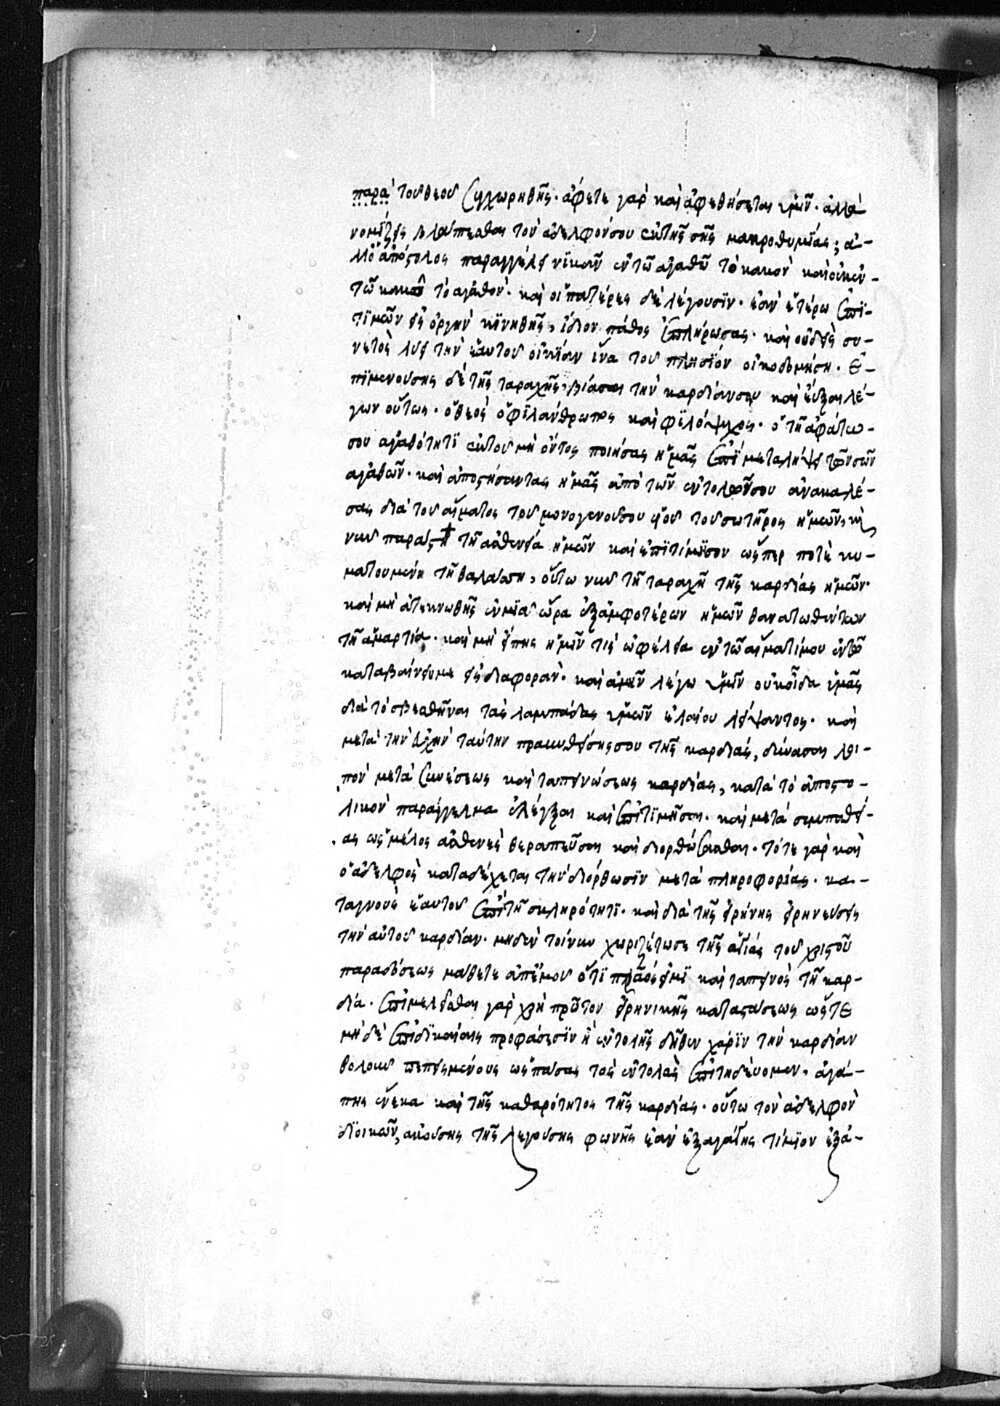 παρὰ τοῦ θεοῦ συγχωρηθῆς· ἄφετε γὰρ καὶ ἀφεθήσεται ὑμῖν· ἀλλὰ
νομίζεις βλάπτεσθαι τὸν ἀδελφόν σου ἐκ τῆς σῆς μακροθυμίας; ἀλ-
λ' ὁ ἀπόστολος παραγγέλει νικᾶν ἐν τῶ ἀγαθῶ τὸ κακὸν καὶ οὐκ ἐν
τῶ κακῶ τὸ ἀγαθόν· καὶ οἱ πατέρες δὲ λέγουσϊν· ἐὰν ἑτέρω ἐπι-
τιμῶν εἰς ὀργὴν κϊνηθῆς, ἴδιον πάθος ἐπλήρωσας· καὶ οὐδεὶς συ-
νετὸς λύει τὴν ἑαυτοῦ οἰκίαν ἵνα τοῦ πλησίον οἰκοδομήση· ἐ-
πϊμενούσης δὲ τῆς ταραχῆς, βίασαι τὴν καρδίαν σου καὶ εὖξαι λέ-
γων οὕτως· ὁ θεὸς ὁ φϊλάνθρωπος καὶ φϊλόψυχος· ὁ τῆ ἀφάτω
σου ἀγαθότητϊ ἐκ τοῦ μὴ ὄντος ποιήσας ἡμᾶς ἐπὶ μεταλήψει τῶν σῶν
ἀγαθῶν· καὶ ἀποστήσαντας ἡμᾶς ἀπὸ τῶν ἐντολῶν σου ἀνακαλέ-
σας διὰ τοῦ αἵματος τοῦ μονογενοῦς σου υἱοῦ τοῦ σωτῆρος ἡμῶν, καὶ
νῦν παράστηθι τῆ ἀσθενεία ἡμῶν καὶ ἐπϊτίμϊσον ὥσπερ ποτὲ κυ-
ματουμένη τῆ θαλάσση, οὕτω νῦν τῆ ταραχῆ τῆς καρδίας ἡμῶν·
καὶ μὴ ἀτεκνωθῆς ἐν μϊᾶ ὥρα ἐξ ἀμφοτέρων ἡμῶν θανατωθέντων
τῆ ἁμαρτία· καὶ μὴ εἴπης ἡμῖν τίς ὠφέλεια ἐν τῶ αἵματί μου ἐν τῶ
καταβαίνειν με εἰς διαφοράν· καὶ ἀμὴν λέγω ὑμῖν οὐκ οἶδα ὑμᾶς
διὰ τὸ σβεσθῆναι τὰς λαμπάδας ὑμῶν ἐλαίου λείψαντος· καὶ
μετὰ τὴν εὐχὴν ταύτην πραϋνθείσης σου τῆς καρδίας, δύνασαι λοι-
πὸν μετὰ συνέσεως καὶ ταπεινώσεως καρδίας, κατὰ τὸ ἀποστο-
λικὸν παράγγελμα ἐλέγξαι καὶ ἐπιτϊμῆσαι· καὶ μετὰ συμπαθεί-
ας ὡς μέλος ἀσθενὲς θεραπεῦσαι καὶ διορθώσασθαι· τότε γὰρ καὶ
ὁ ἀδελφὸς καταδέχεται τὴν διόρθωσϊν μετὰ πληροφορίας· κα-
ταγνοὺς ἑαυτοῦ ἐπὶ τῆ σκληρότητϊ· καὶ διὰ τῆς εἰρήνης εἰρηνεύσεις
τὴν αὐτοῦ καρδίαν· μηδὲν τοίνυν χωρϊζέτω σε τῆς ἁγίας τοῦ χριστοῦ
παραδόσεως μάθετε ἀπ' ἐμοῦ ὅτι πρᾶός εἰμϊ καὶ ταπεινὸς τῆ καρ-
δία· ἐπιμελεῖσθαι γὰρ χρὴ πρῶτον εἰρηνικῆς καταστάσεως ὥστε
μηδὲ ἐπὶ δϊκαίαις προφάσεσϊν ἢ ἐντολῆς δῆθεν χάρϊν τὴν καρδίαν
θολοῦν πεπεισμένους ὡς πάσας τὰς ἐντολὰς ἐπιτηδεύομεν, ἀγά-
πης ἕνεκα καὶ τῆς καθαρότητος τῆς καρδίας· οὕτω τὸν ἀδελφὸν
διοικῶν, ἀκούσης τῆς λεγούσης φωνῆς ἐὰν ἐξαγάγης τίμϊον ἐξ ἀ-